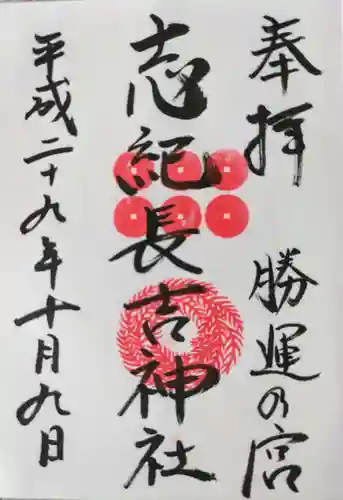 奉拝 勝運の宮
志紀長吉神社
平成二十九年十月九日